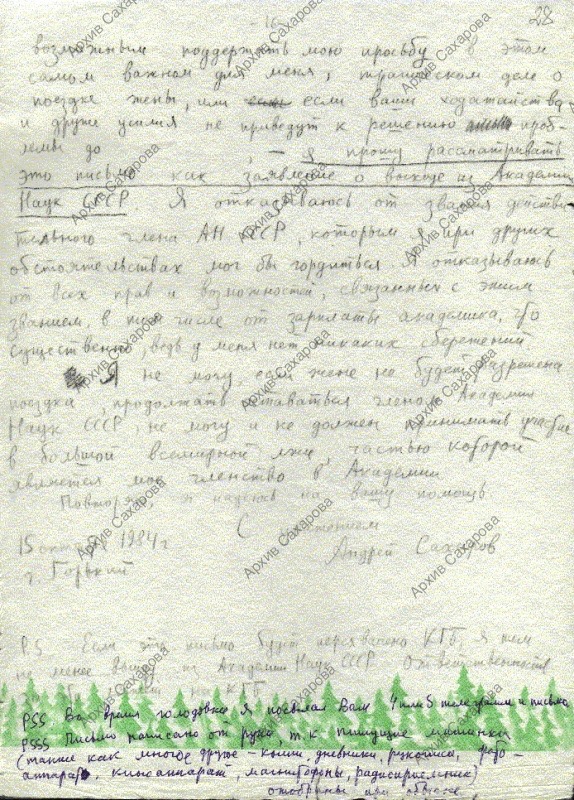 -16-
28
возможным поддержать мою просьбу в этом
самом важном для меня, трагическом деле о
поездке жены, или если ваши ходатайства
и другие усилия не приведут к решению проб-
лемы до , – я прошу рассматривать
это письмо как заявление о выходе из Академии
Наук СССР Я отказываюсь от звания действи
тельного члена АН СССР, которым я при других
обстоятельствах мог бы гордиться. Я отказываюсь
от всех прав и возможностей, связанных с этим
званием, в том числе от зарплаты академика, что
существенно, ведь у меня нет никаких сбережений
Я не могу, если жене не будет разрешена
поездка, продолжать оставаться членом Академии
Наук СССР, не могу и не должен принимать участие
в большой всемирной лжи, частью которой
является мое членство в Академии
Повторяю, я надеюсь на вашу помощь
С уважением
15 октября 1984 г Андрей Сахаров
г. Горький
PS Если это письмо будет перехвачено КГБ, я тем
не менее выйду из Академии Наук СССР Ответственность
на КГБ
PSS Во время голодовки я посылал Вам 4 или 5 телеграмм и письмо
PSSS Письмо написано от руки т.к пишущие машинки
(также как многое другое – книги, дневники, рукописи, фото-
аппарат, киноаппарат, магнитофоны, радиоприемник)
отобраны при обыске
Архив Сахарова